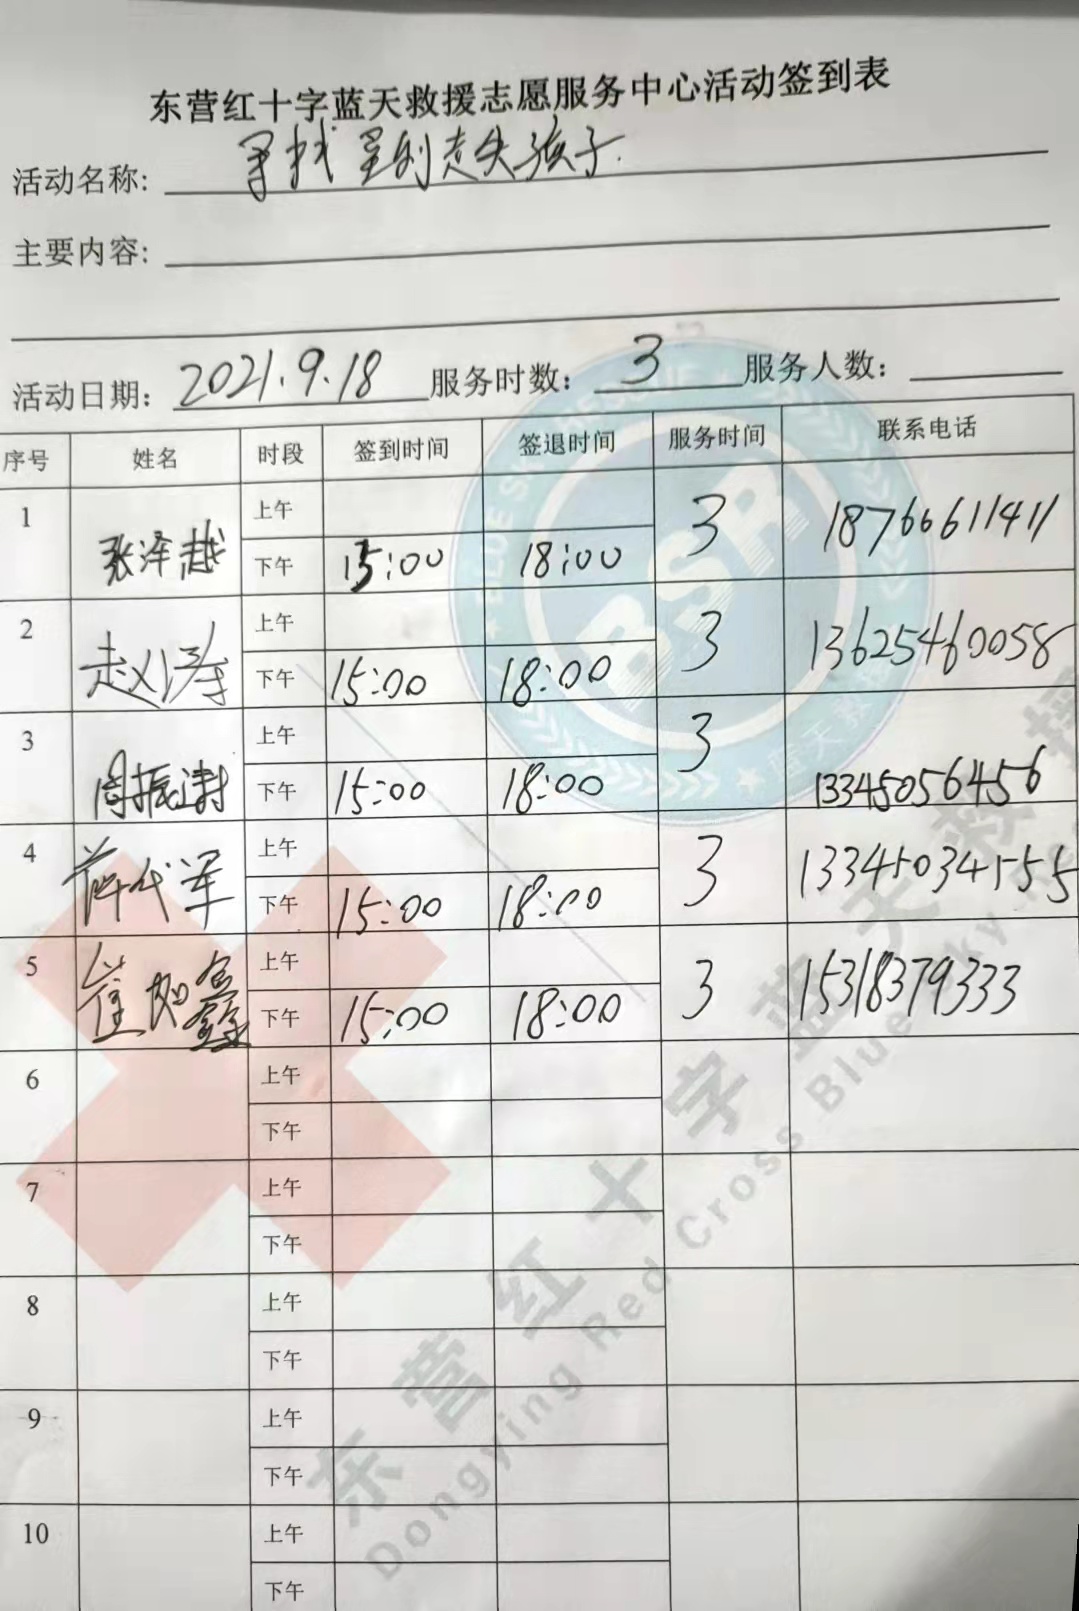 东营红十字蓝天救援志愿服务中心活动签到表
活动名称: 寻找垦利走失孩子.
主要内容:
活动日期: 2021.9.18 服务时数: 3 服务人数:
序号 姓名 时段 签到时间 签退时间 服务时间 联系电话
1 张泽越 上午 3 18766611411
下午 15:00 18:00
2 赵 涛 上午 3 13625460058
下午 15:00 18:00
3 周振 上午 3 13345056456
下午 15:00 18:00
4 薛代军 上午 3 13345034555
下午 15:00 18:00
5 崔如鑫 上午 3 15318379333
下午 15:00 18:00
6 上午
下午
7 上午
下午
8 上午
下午
9 上午
下午
10 上午
下午
BSR
BLUE SKY RESCUE
蓝天救援
东营红十字蓝天救援
Dongying Red Cross Blue Sky Re